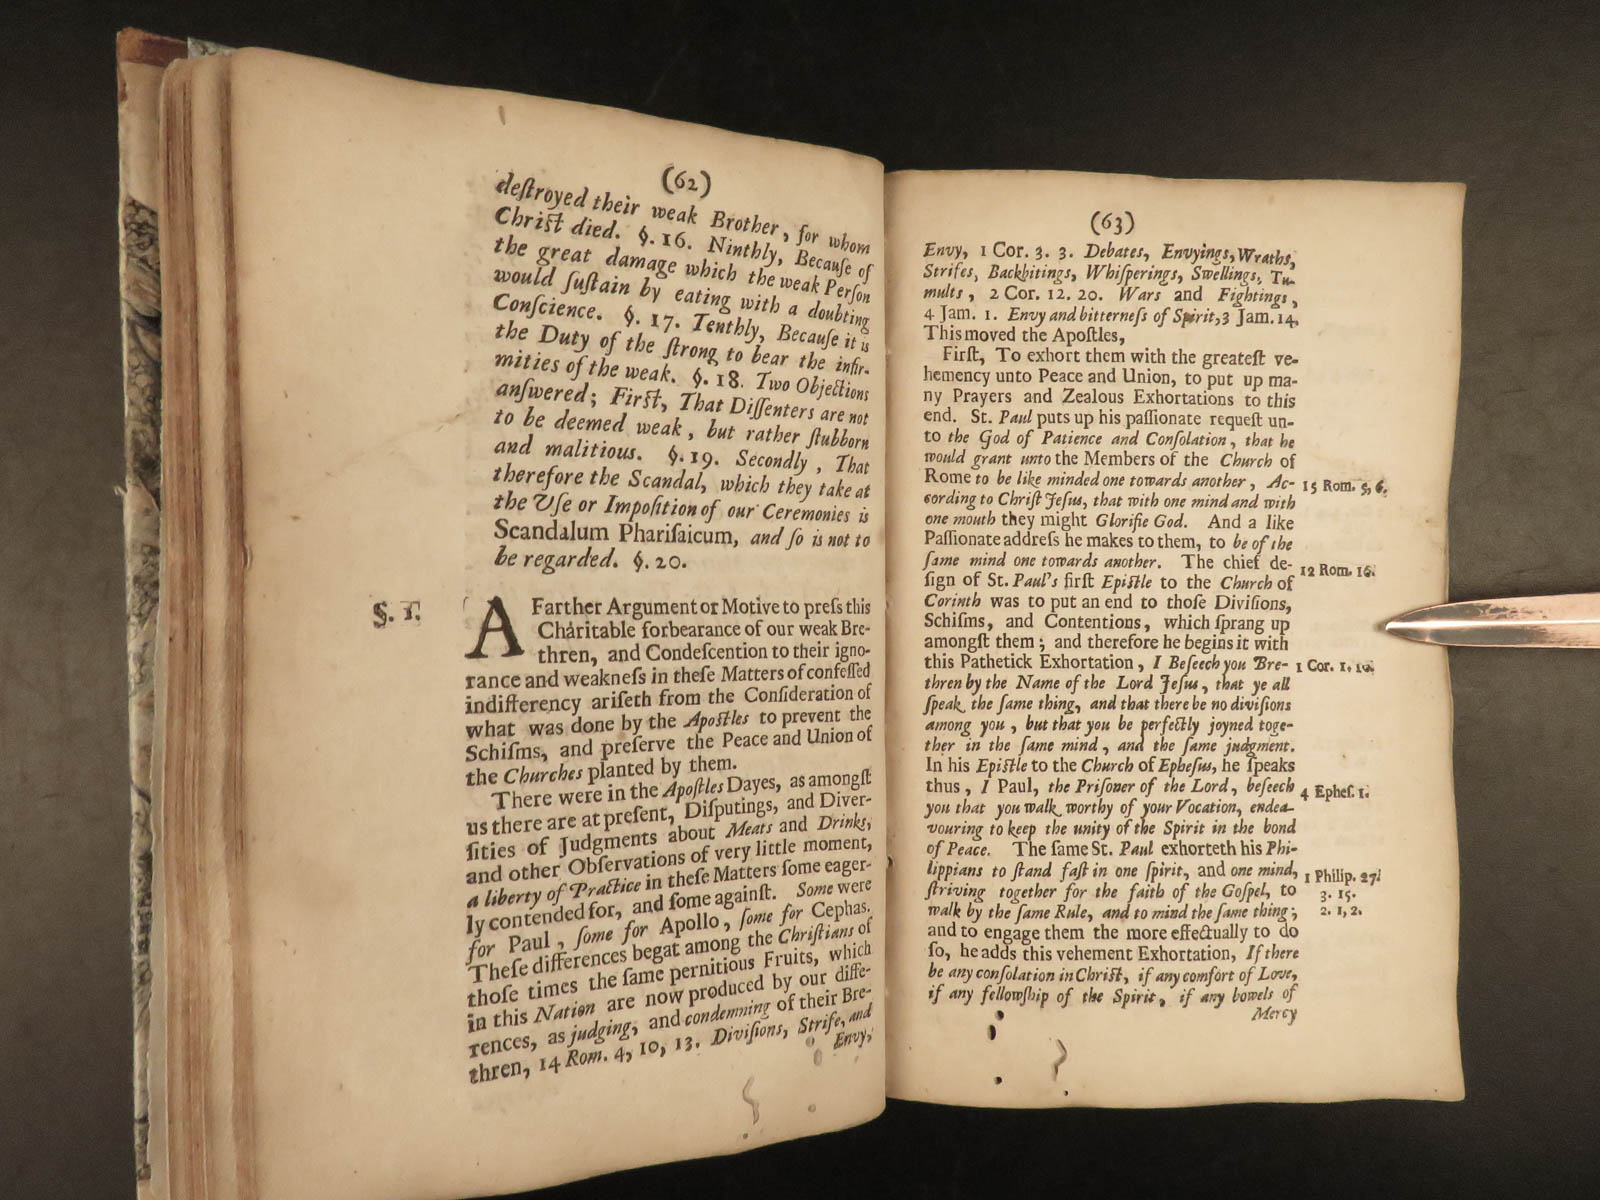 (62)
deſtroyed their weak Brother, for whom
Chriſt died. §. 16. Ninthly, Becauſe of
the great damage which the weak Perſon
would ſuſtain by eating with a doubting
Conſcience. §. 17. Tenthly, Becauſe it is
the Duty of the ſtrong to bear the infir-
mities of the weak. §. 18. Two Objections
anſwered; Firſt, That Diſſenters are not
to be deemed weak, but rather ſtubborn
and malitious. §. 19. Secondly, That
therefore the Scandal, which they take at
the Uſe or Impoſition of our Ceremonies is
Scandalum Phariſaicum, and ſo is not to
be regarded. §. 20.
§. I.
A Farther Argument or Motive to preſs this
Charitable forbearance of our weak Bre-
thren, and Condeſcention to their igno-
rance and weakneſs in theſe Matters of confeſſed
indifferency ariſeth from the Conſideration of
what was done by the Apoſtles to prevent the
Schiſms, and preſerve the Peace and Union of
the Churches planted by them.
There were in the Apoſtles Dayes, as amongſt
us there are at preſent, Diſputings, and Diver-
ſities of Judgments about Meats and Drinks,
and other Obſervations of very little moment,
a liberty of Practice in theſe Matters ſome eager-
ly contended for, and ſome againſt. Some were
for Paul, ſome for Apollo, ſome for Cephas.
Theſe differences begat among the Chriſtians of
thoſe times the ſame pernitious Fruits, which
in this Nation are now produced by our diffe-
rences, as judging, and condemning of their Bre-
thren, 14 Rom. 4, 10, 13. Diviſions, Strife, and
Envy,
(63)
Envy, 1 Cor. 3. 3. Debates, Envyings, Wraths,
Strifes, Backbitings, Whiſperings, Swellings, Tu-
mults, 2 Cor. 12. 20. Wars and Fightings,
4 Jam. 1. Envy and bitterneſs of Spirit, 3 Jam. 14,
This moved the Apoſtles,
Firſt, To exhort them with the greateſt ve-
hemency unto Peace and Union, to put up ma-
ny Prayers and Zealous Exhortations to this
end. St. Paul puts up his paſſionate requeſt un-
to the God of Patience and Conſolation, that he
would grant unto the Members of the Church of
Rome to be like minded one towards another, Ac-
cording to Chriſt Jeſus, that with one mind and with
one mouth they might Glorifie God. And a like
Paſſionate addreſs he makes to them, to be of the
ſame mind one towards another. The chief de-
ſign of St. Paul's firſt Epiſtle to the Church of
Corinth was to put an end to thoſe Diviſions,
Schiſms, and Contentions, which ſprang up
amongſt them; and therefore he begins it with
this Pathetick Exhortation, I Beſeech you Bre-
thren by the Name of the Lord Jeſus, that ye all
ſpeak the ſame thing, and that there be no diviſions
among you, but that you be perfectly joyned toge-
ther in the ſame mind, and the ſame judgment.
In his Epiſtle to the Church of Epheſus, he ſpeaks
thus, I Paul, the Priſoner of the Lord, beſeech
you that you walk worthy of your Vocation, endea-
vouring to keep the unity of the Spirit in the bond
of Peace. The ſame St. Paul exhorteth his Phi-
lippians to ſtand faſt in one ſpirit, and one mind,
ſtriving together for the faith of the Goſpel, to
walk by the ſame Rule, and to mind the ſame thing;
and to engage them the more effectually to do
ſo, he adds this vehement Exhortation, If there
be any conſolation in Chriſt, if any comfort of Love,
if any fellowſhip of the Spirit, if any bowels of
Mercy
15 Rom. 5, 6.
12 Rom. 16.
1 Cor. 1. 10.
4 Epheſ. 1.
1 Philip. 27.
3. 15.
2. 1, 2.